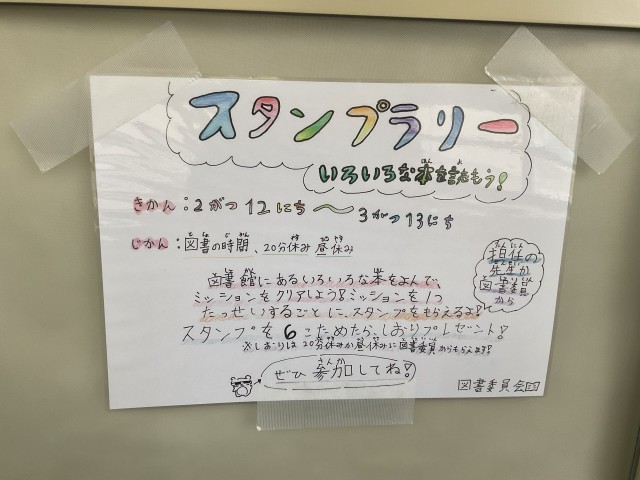 スタンプラリー
いろいろな本を読もう!
きかん:2がつ12にち〜3がつ13にち
じかん:図書の時間、20分休み 昼休み
図書館にあるいろいろな本をよんで、
ミッションをクリアしよう!ミッションを1つ
たっせいするごとに、スタンプをもらえるよ!
スタンプを6こためたら、しおりプレゼント!
※しおりは20分休みか昼休みに図書委員からもらえます!
担任の
先生か
図書委員
から
ぜひ参加してね!
図書委員会